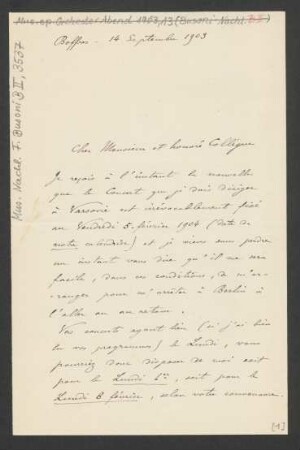 Mus. ep. Orchester Abend 1903, 13 (Busoni-Nachl. B II)
Mus. Nachl. F. Busoni B II, 3537
Boffres - 14 Septembre 1903
Cher Monsieur et honoré Collègue
Je reçois à l'instant la nouvelle
que le Concert que je dois diriger
à Varsovie est irrévocablement fixé
au Vendredi 5 février 1904 (date de
notre calendrier) et je viens sans perdre
un instant vous dire qu'il me sera
facile, dans ces conditions, de m'ar-
ranger pour m'arrêter à Berlin à
l'aller ou au retour.
Vos concerts ayant lieu (si j'ai bien
lu vos programmes) le Lundi, vous
pourriez donc disposer de moi soit
pour le Lundi 1er, soit pour le
Lundi 8 février, selon votre convenance.
[1]